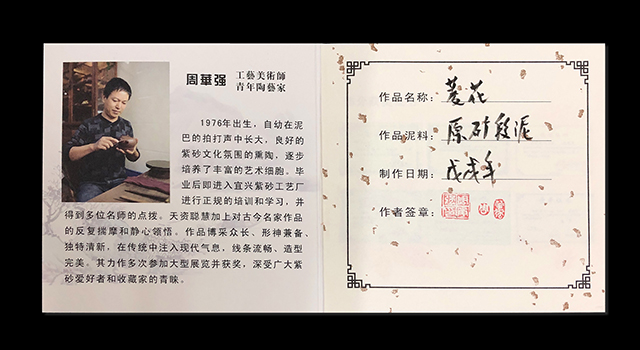 周華强
工藝美術師
青年陶藝家
1976年出生，自幼在泥
巴的拍打声中长大，良好的
紫砂文化氛围的熏陶，逐步
培养了丰富的艺术细胞。毕
业后即进入宜兴紫砂工艺厂
进行正规的培训和学习，并
得到多位名师的点拨。天资聪慧加上对古今名家作品
的反复揣摩和静心领悟。作品博采众长、形神兼备、
独特清新，在传统中注入现代气息，线条流畅、造型
完美。其力作多次参加大型展览并获奖，深受广大紫
砂爱好者和收藏家的青睐。
作品名称：菱花
作品泥料：原矿段泥
制作日期：戊戌年
作者签章：